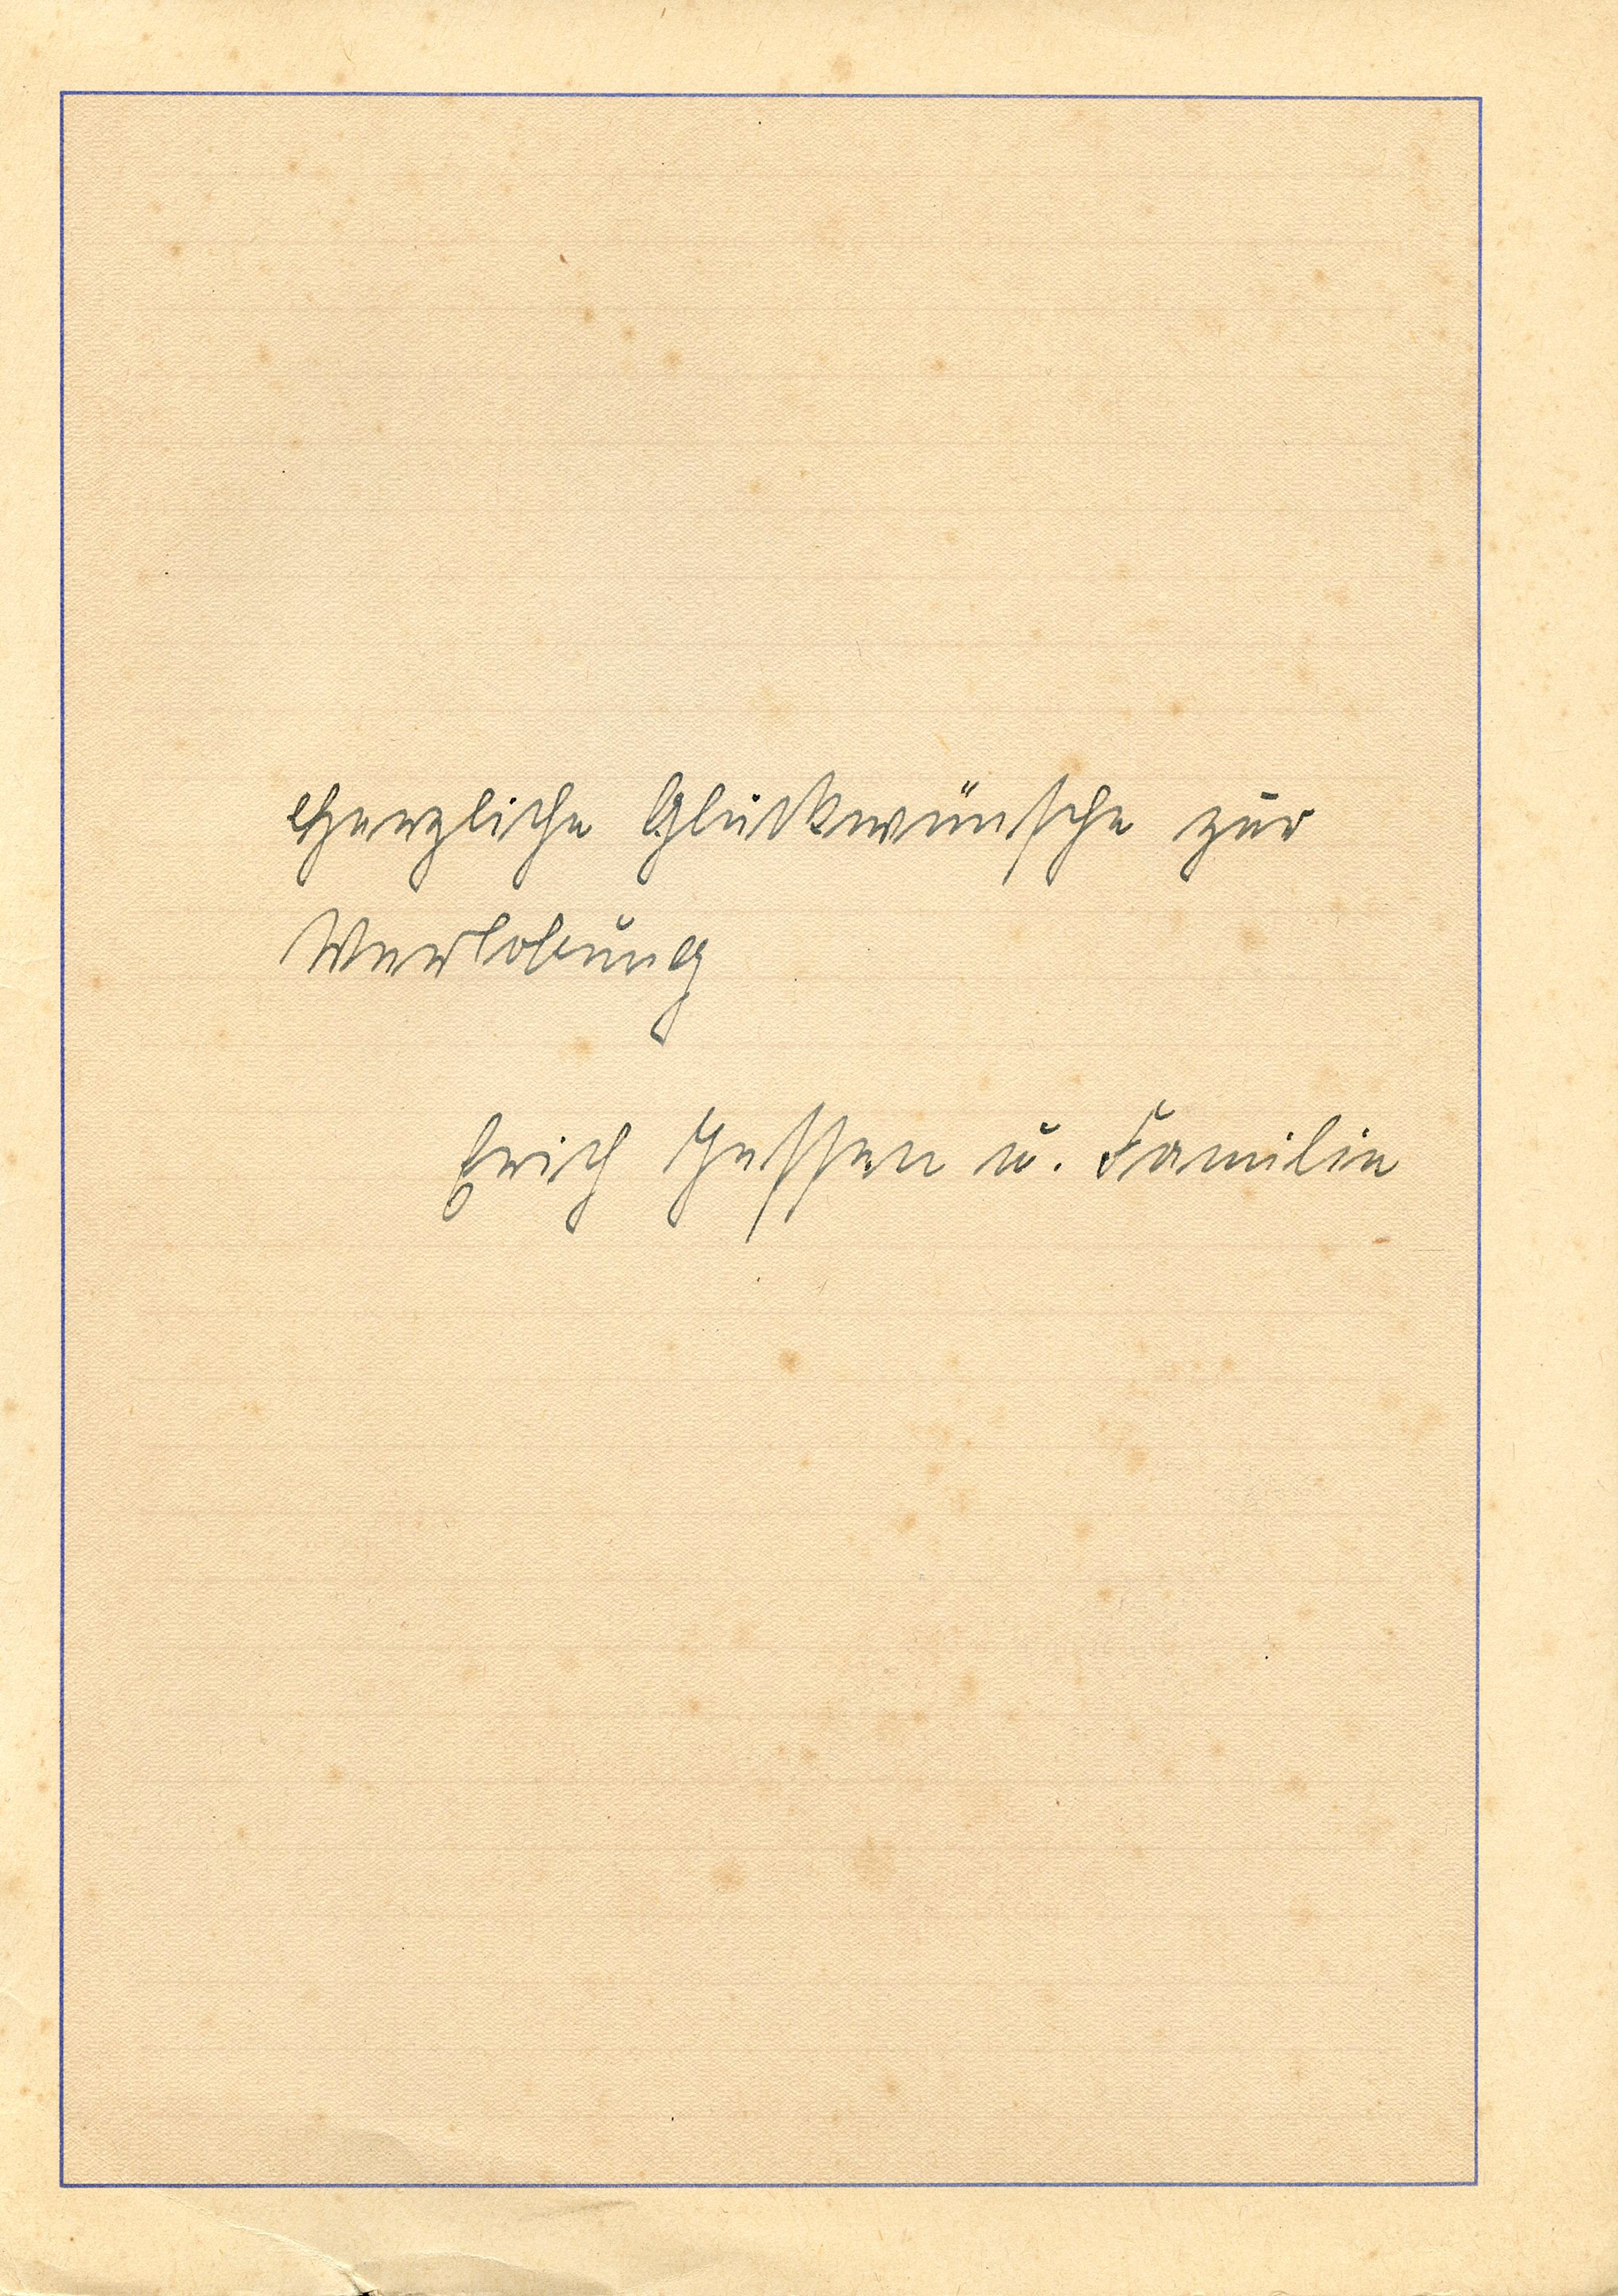 Herzliche Glückwünsche zur
Verlobung
Erich Jessen u. Familie